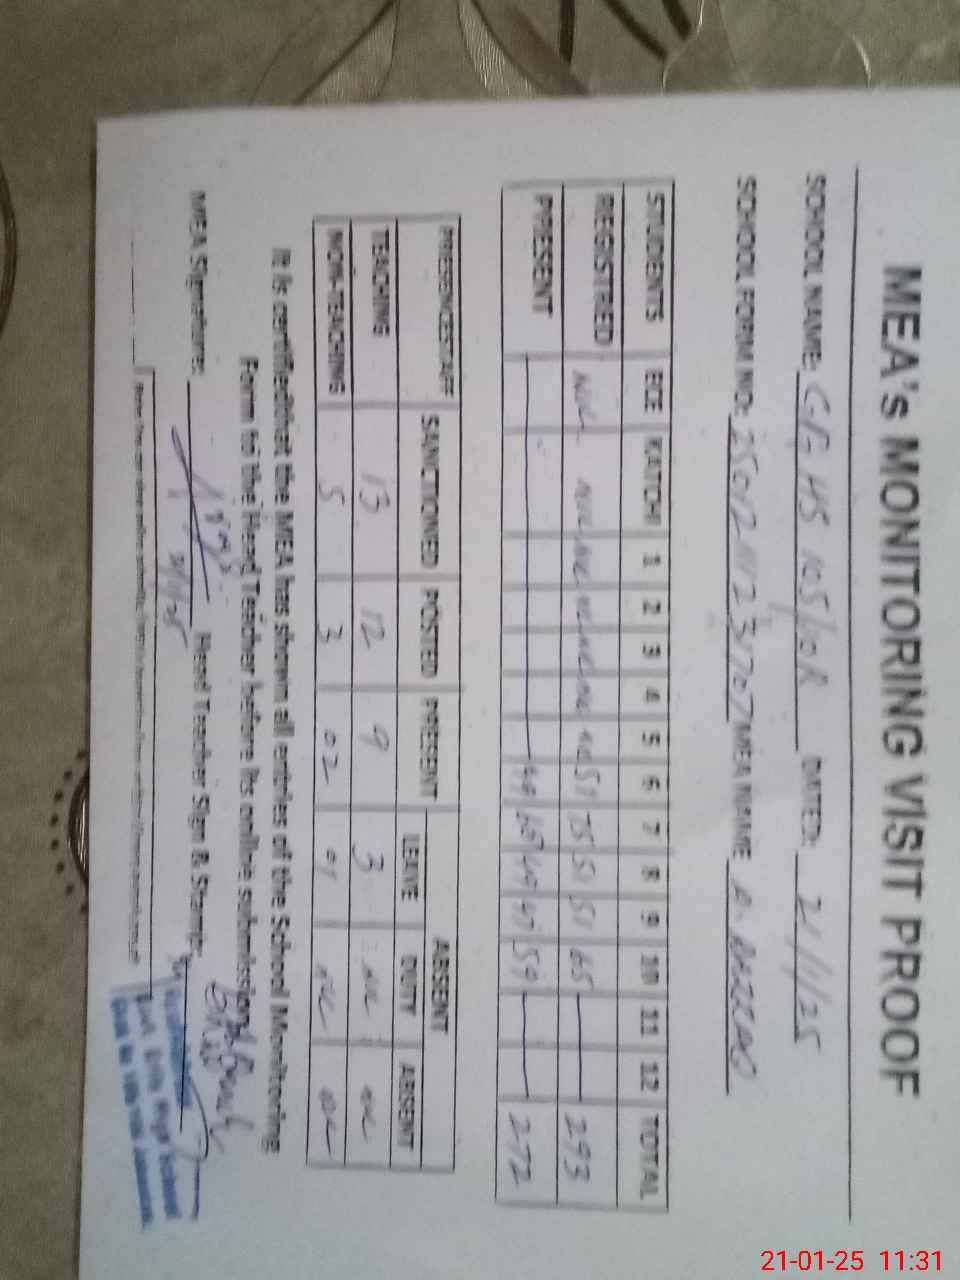 MEA's MONITORING VISIT PROOF
SCHOOL NAME: GGHS 105/10R DATED: 21/1/25
SCHOOL FORM NO: MEA NAME A. RAZZAQ
STUDENTS ECE KATCHI 1 2 3 4 5 6 7 8 9 10 11 12 TOTAL
REGISTRED NIL NIL NIL NIL NIL NIL NIL 51 75 51 51 65 293
PRESENT 49 68 49 47 59 272
PRESENCESTAFF SANCTIONED POSTED PRESENT ABSENT
LEAVE DUTY ABSENT
TEACHING 13 12 9 3 NIL NIL
NON-TEACHING 5 3 02 01 NIL NIL
It is certifiedthat the MEA has shown all entries of the School Monitoring
Form to the Head Teacher before its online submission
MEA Signature: Head Teacher Sign & Stamp:
21/1/25
Govt. Girls High School
21-01-25 11:31